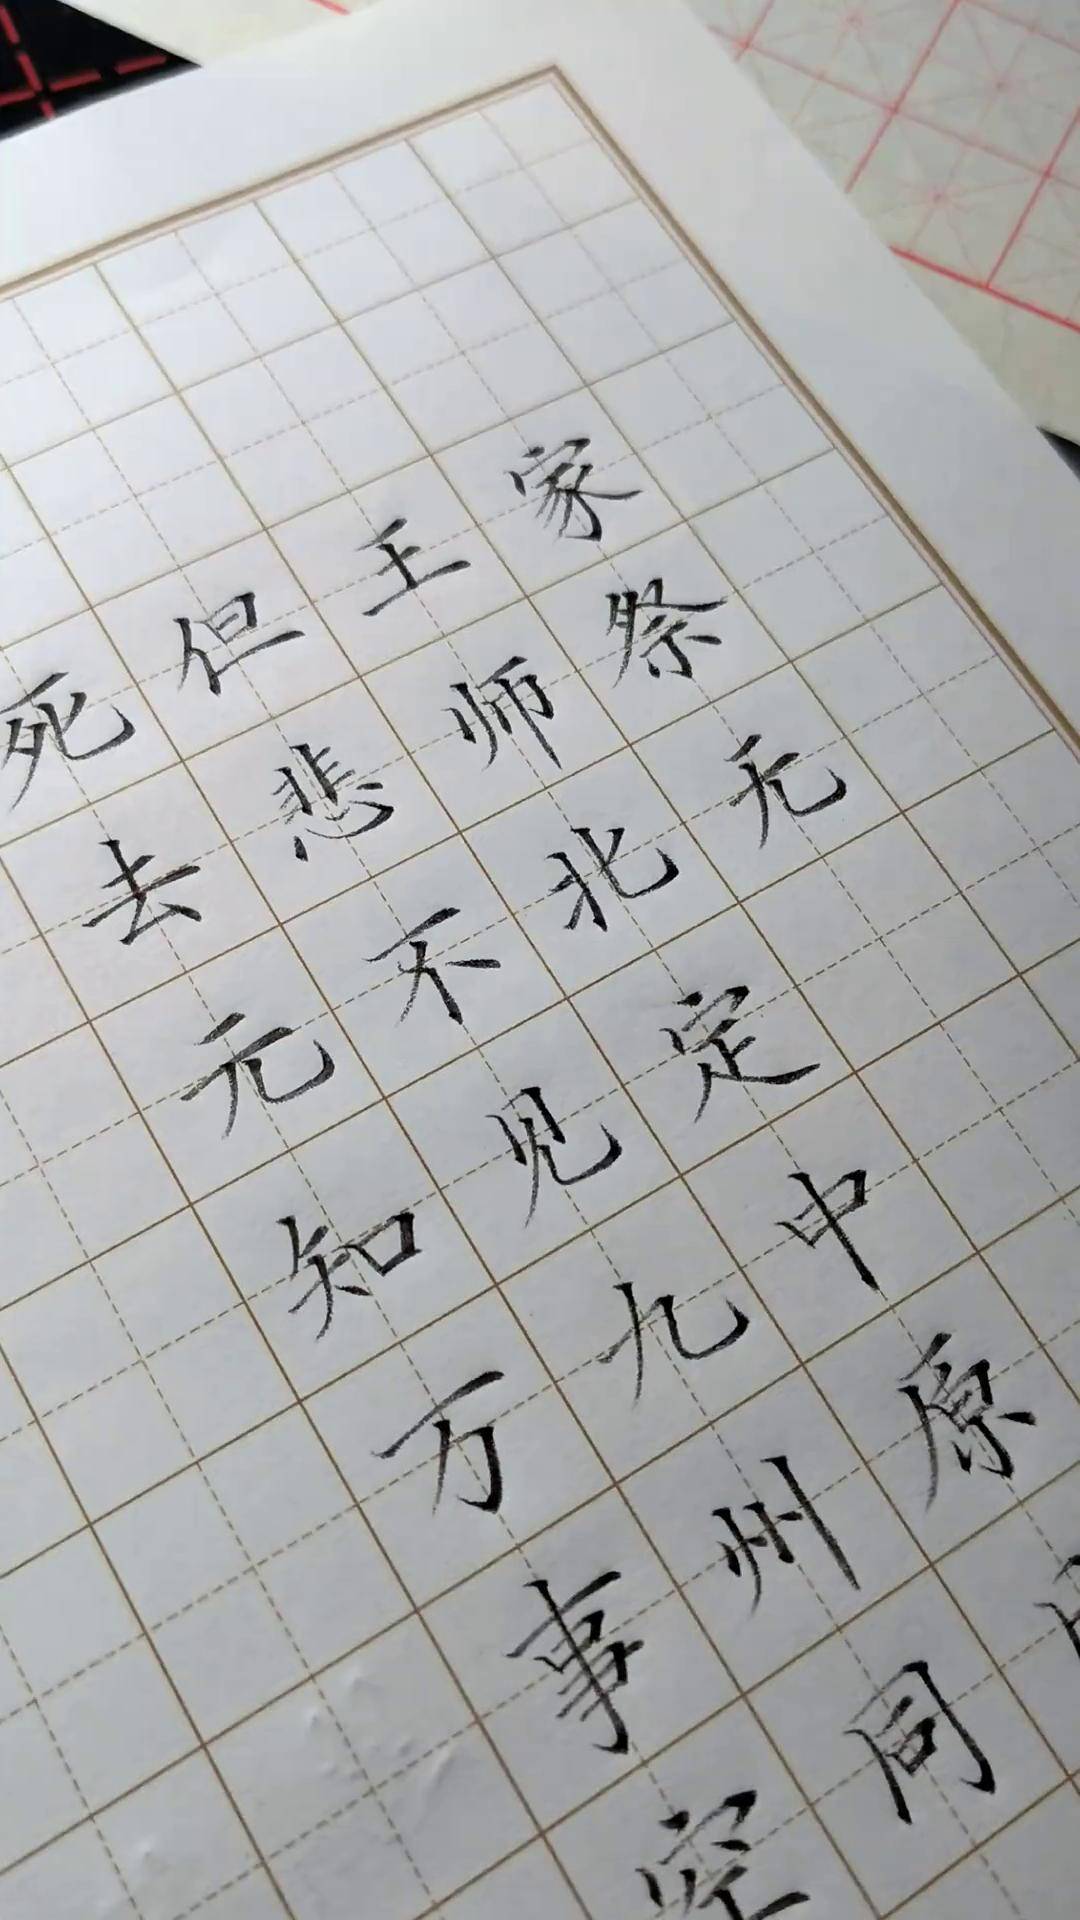 死去元知万事空
但悲不见九州同
王师北定中原
家祭无